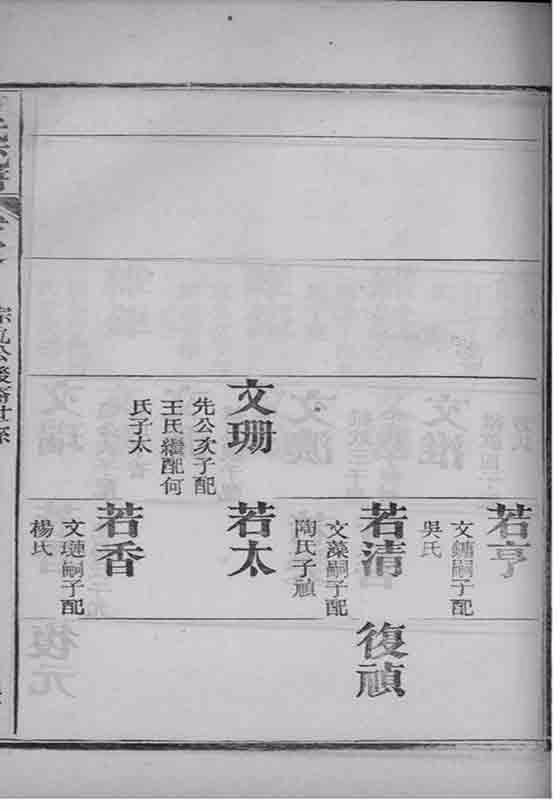 若亨
文鏞嗣子配
吳氏
若清
文藻嗣子配
陶氏子禎
復禎
文珊
先公次子配
王氏繼配何
氏子太
若太
若香
文璉嗣子配
楊氏
公後裔世系